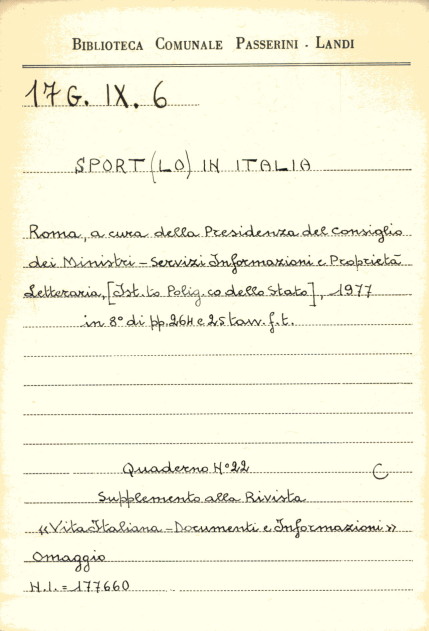 BIBLIOTECA COMUNALE PASSERINI - LANDI
17 G. IX. 6
SPORT (LO) IN ITALIA
Roma, a cura della Presidenza del Consiglio
dei Ministri - Servizi Informazioni e Proprietà
Letteraria, [Ist.to Polig.co dello Stato], 1977
in 8° di pp. 264 e 25 tav. f. t.
Quaderno N° 22 C
Supplemento alla Rivista
«Vita Italiana - Documenti e Informazioni»
Omaggio
N.I. = 177660